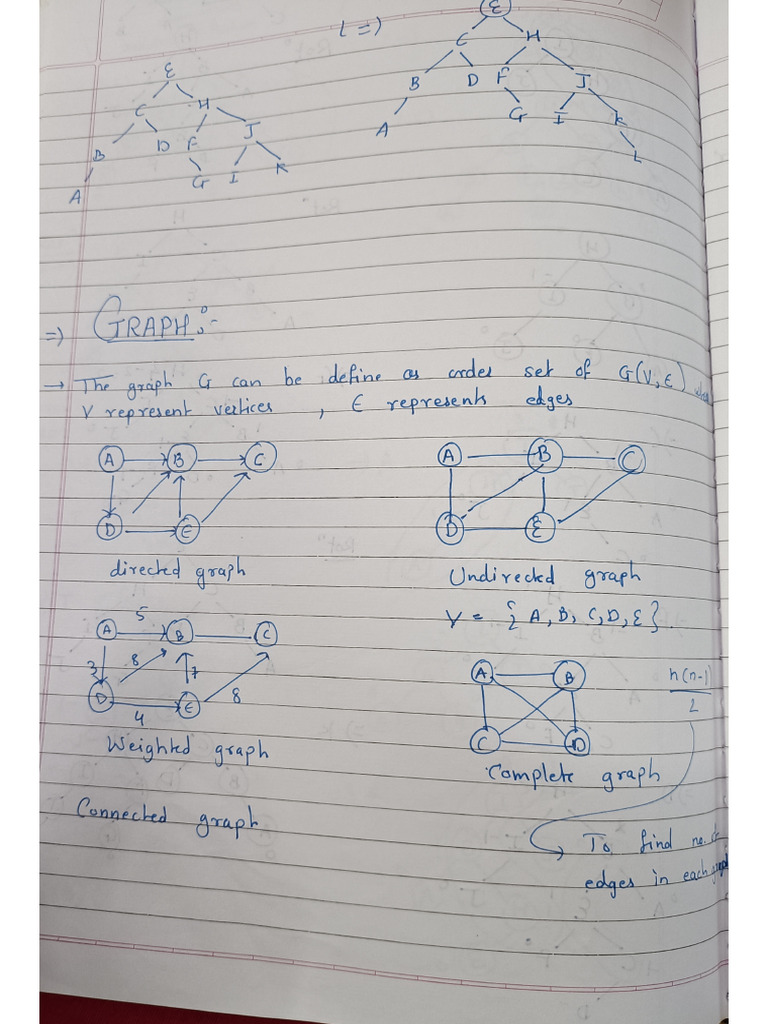 L =)
E
C H
B D F J
A G I K
L
E
C H
B D F J
A G I K
=) GRAPH:-
→ The graph G can be define as order set of G(V, E)
V represent vertices , E represents edges
A B C
D E
directed graph
A B C
D E
Undirected graph
V = { A, B, C, D, E }
A 5 B C
3 8 7
D 4 E 8
Weighted graph
A B
C D
Complete graph
n(n-1)
2
Connected graph
To find no. of
edges in each graph